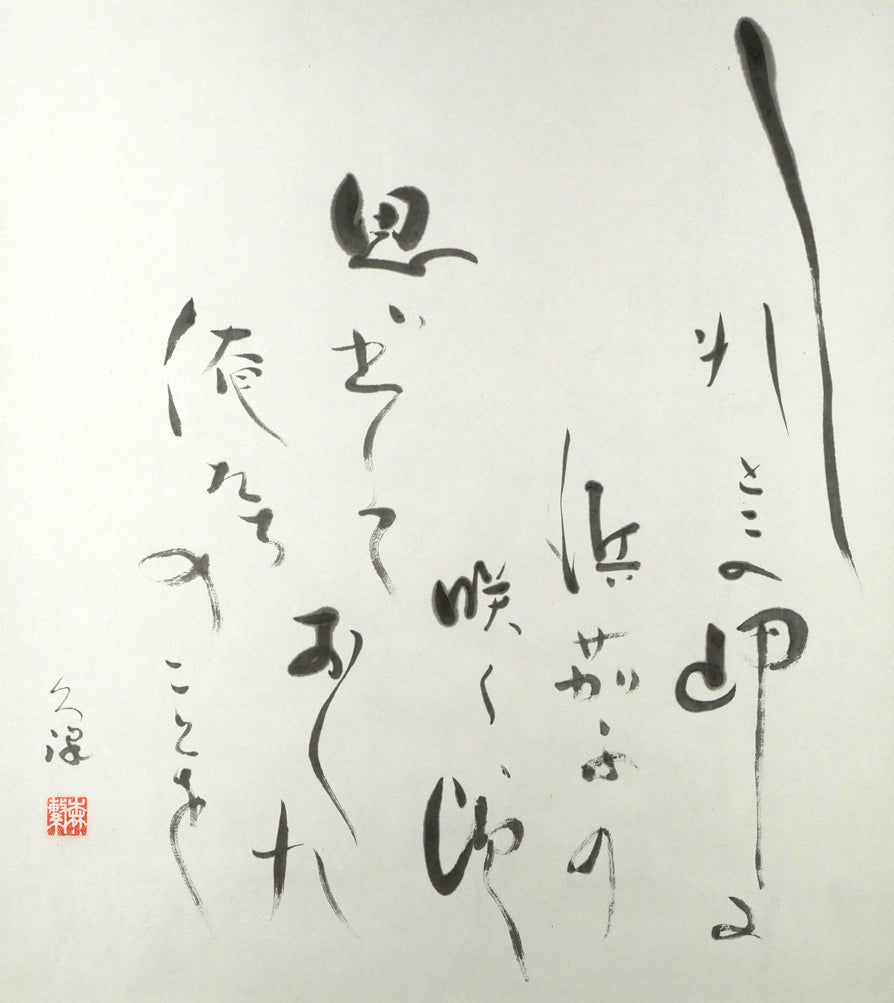 しれとこの岬に
浜茄子の
咲く頃
思い出して
おくれ
俺たちの
ことを
久彌
森繁